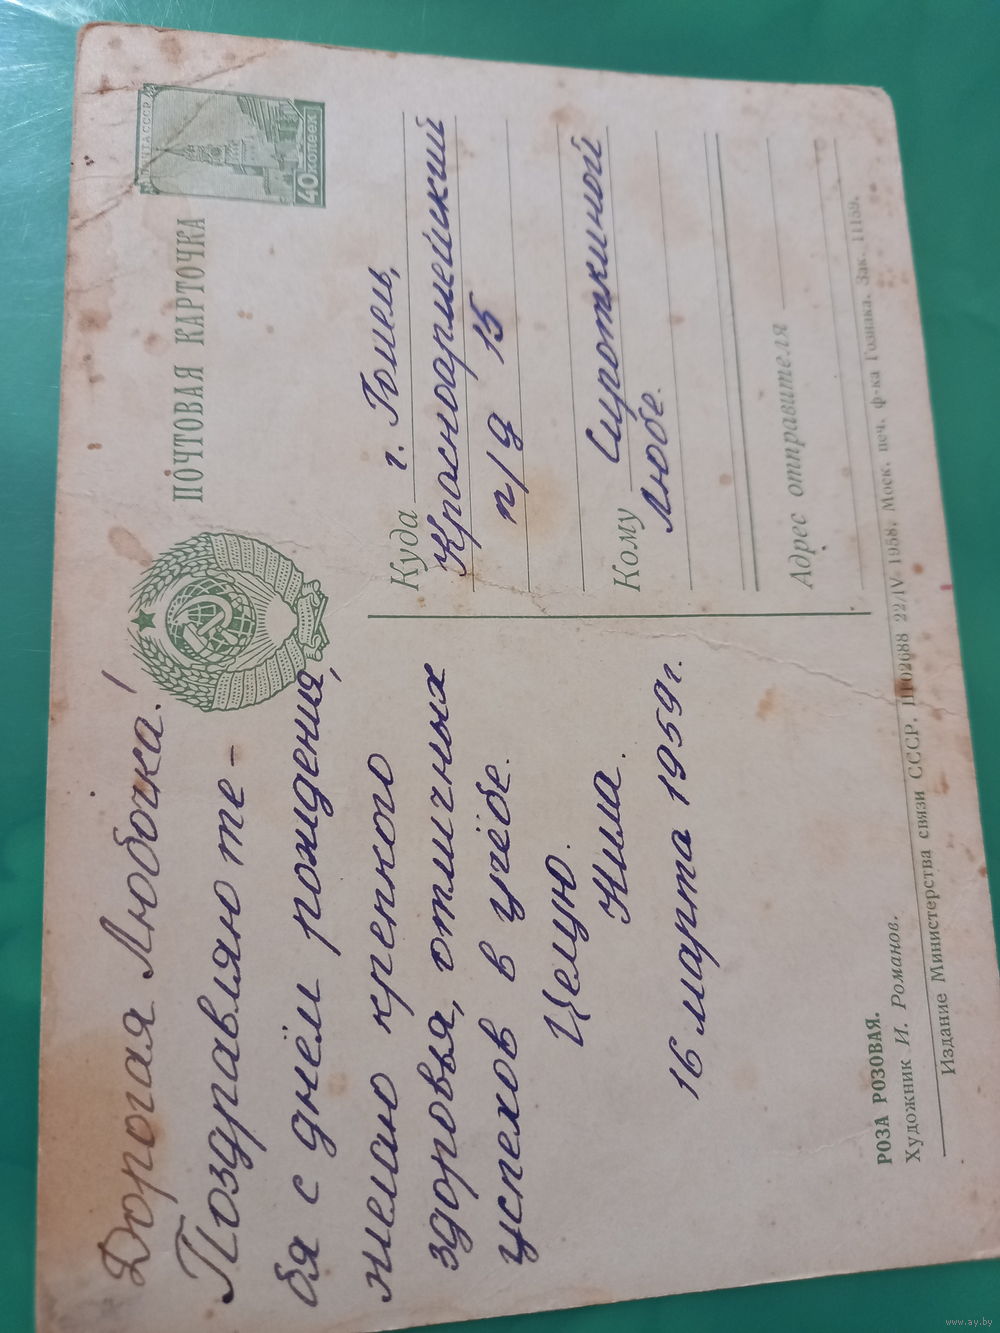 Дорогая Любочка!
Поздравляю те-
бя с днём рождения,
желаю крепкого
здоровья, отличных
успехов в учёбе.
Целую.
Кима.
16 марта 1959 г.
РОЗА РОЗОВАЯ.
Художник И. Романов.
ПОЧТА СССР
40 КОПЕЕК
ПОЧТОВАЯ КАРТОЧКА
Куда г. Гомель,
Красноармейский
п/д 15
Кому Сироткиной
Любе.
Адрес отправителя
Издание Министерства связи СССР. 22/IV 1958. Моск. печ. ф-ка Гознака. Зак. 11159.
www.ay.by